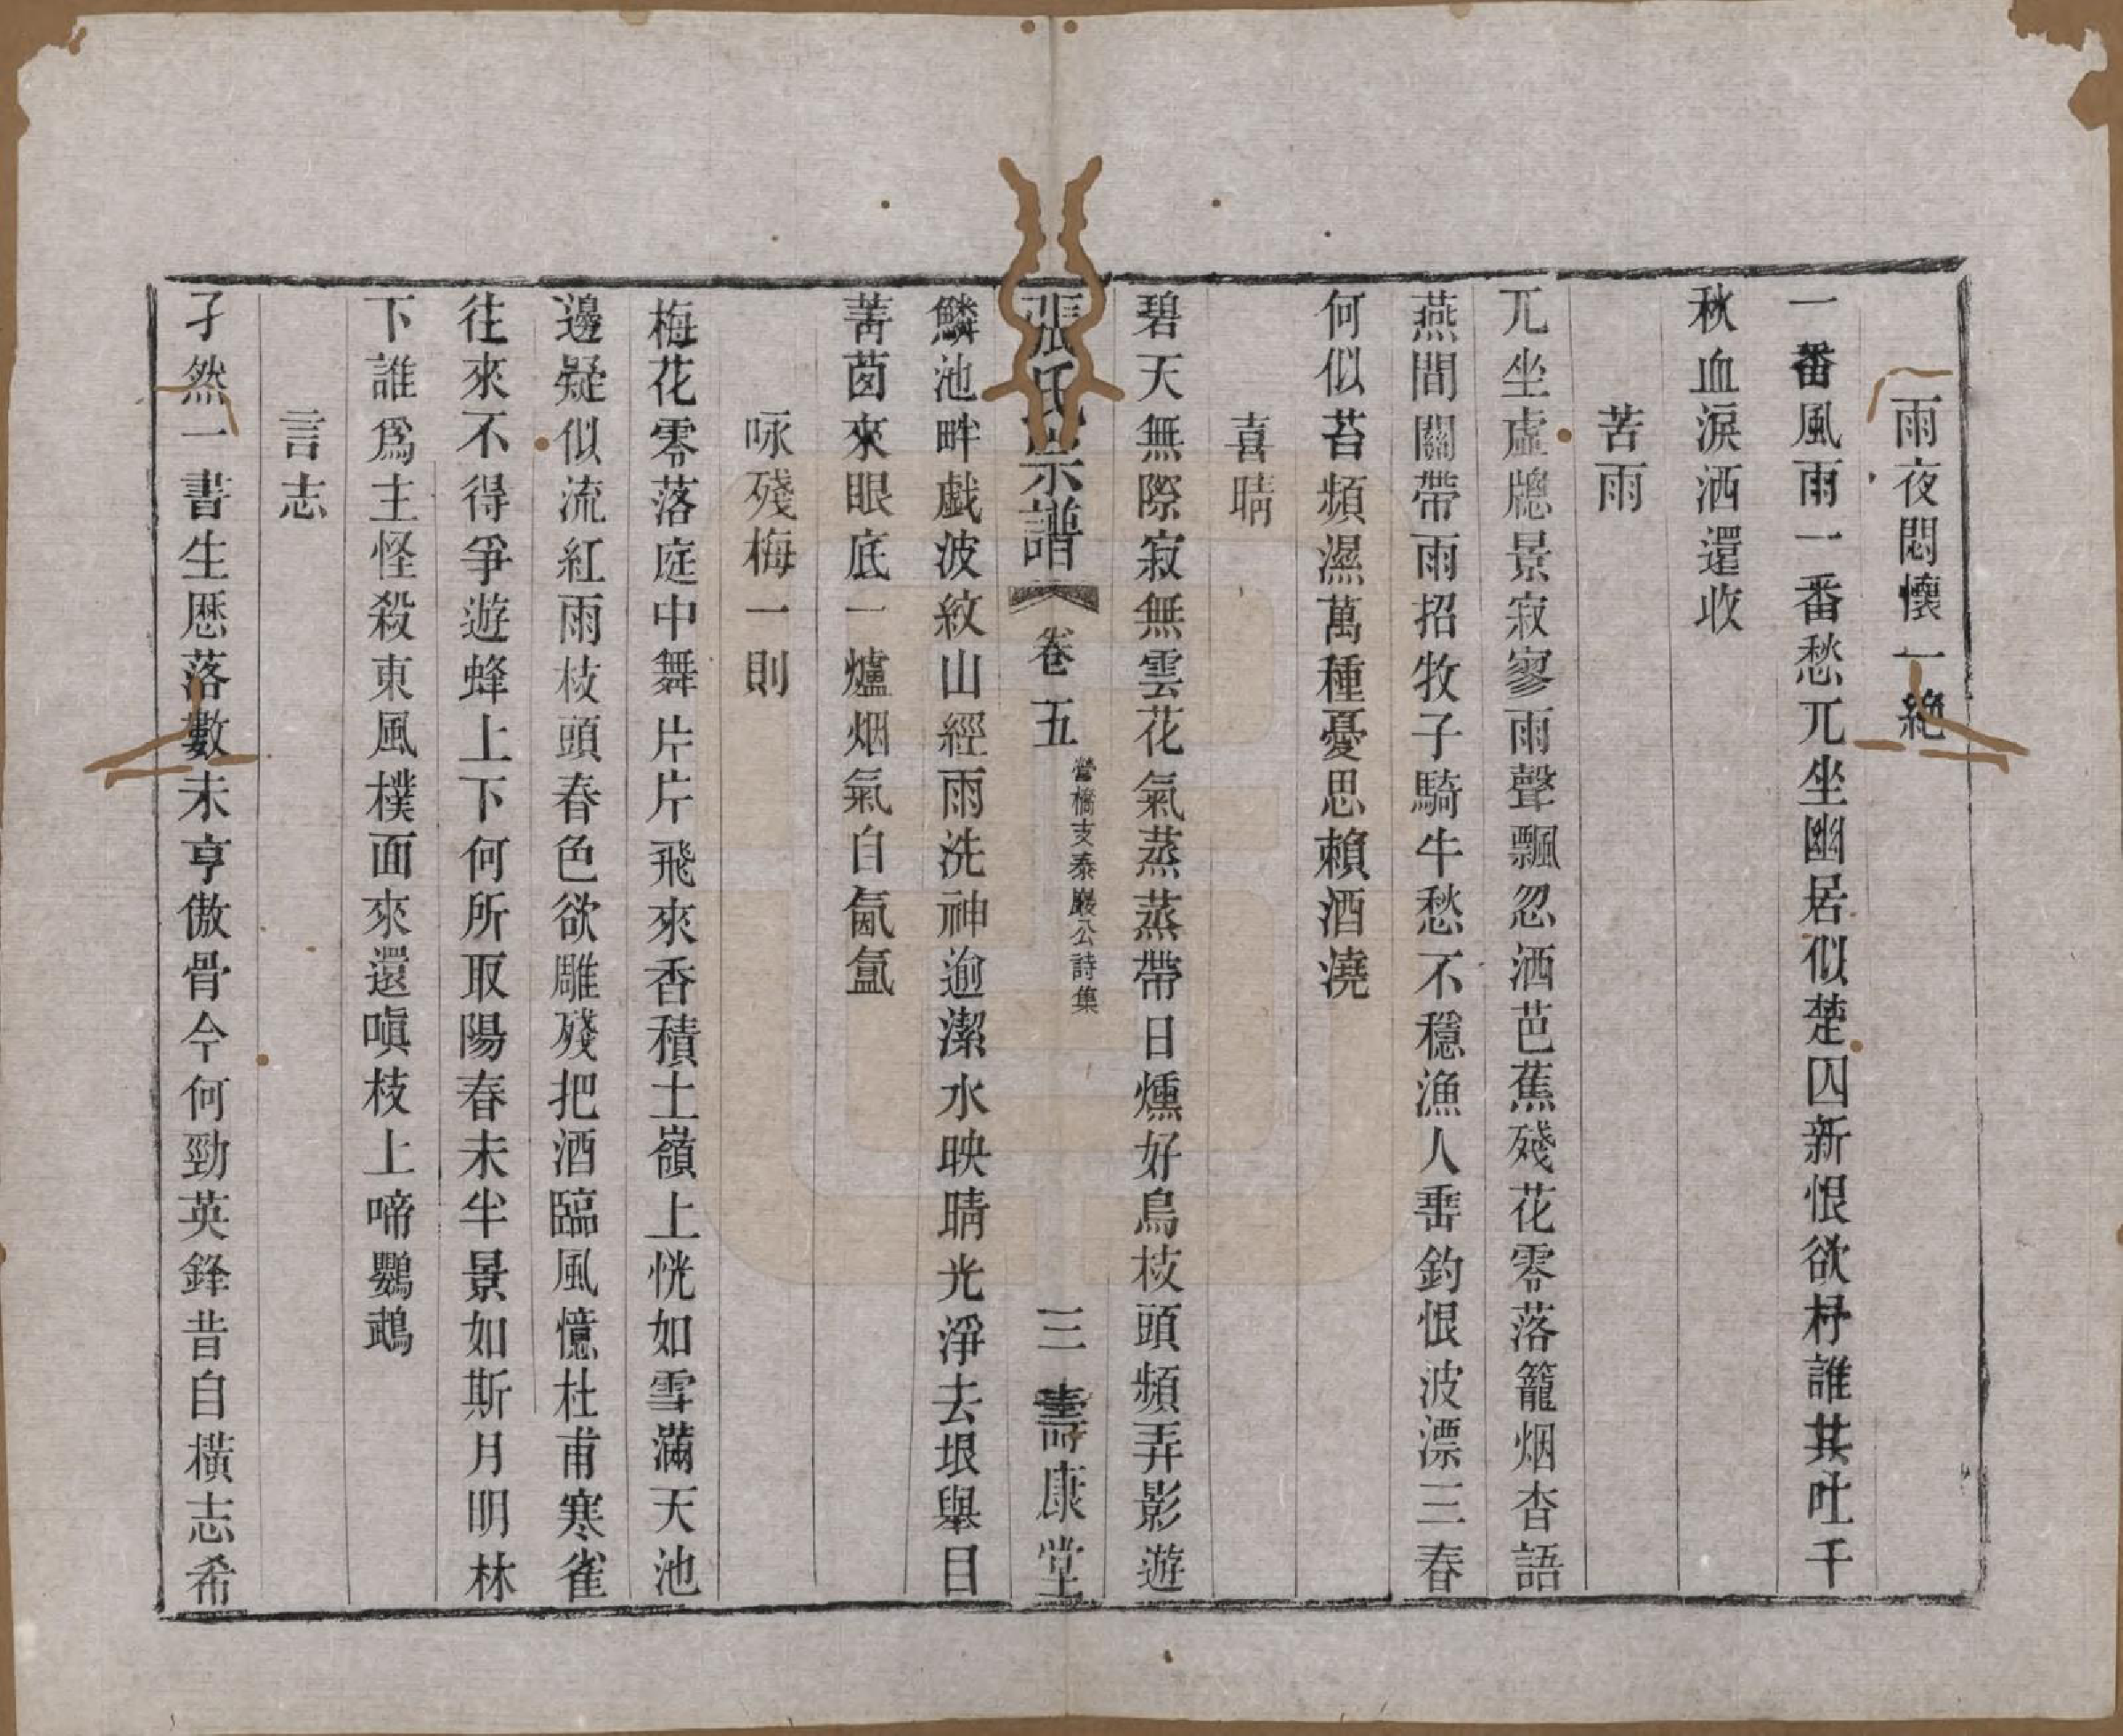 雨夜悶懷一絶
一番風雨一番愁兀坐幽居似楚囚新恨欲杼誰共吐千
秋血淚洒還收
苦雨
兀坐虛牕景寂寥雨聲飄忽洒芭蕉殘花零落籠烟杳語
燕間關帶雨招牧子騎牛愁不穩漁人垂釣恨波漂三春
何似苔頻濕萬種憂思賴酒澆
喜晴
碧天無際寂無雲花氣蒸蒸帶日燻好鳥枝頭頻弄影遊
張氏宗譜 卷五 營橋支泰巖公詩集 三 壽康堂
鱗池畔戱波紋山經雨洗神逾潔水映晴光淨去垠舉目
菁茵來眼底一爐烟氣自氤氳
咏殘梅一則
梅花零落庭中舞片片飛來香積土嶺上恍如雪滿天池
邊疑似流紅雨枝頭春色欲雕殘把酒臨風憶杜甫寒雀
往來不得爭遊蜂上下何所取陽春未半景如斯月明林
下誰爲主怪殺東風樸面來還嗔枝上啼鸚鵡
言志
孑然一書生歷落數未亨傲骨今何勁英鋒昔自橫志希